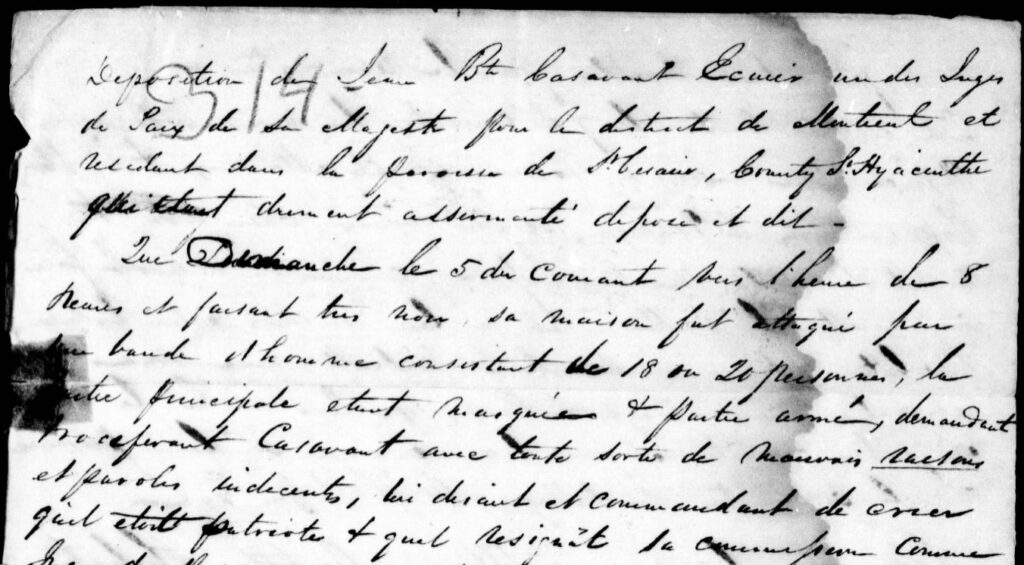 Deposition de Jean Bte Casavant Ecuier un des Juges
314
de Paix de Sa Magesté pour le district de Montreal et
residant dans la paroisse de St Cesaire, County St Hyacinthe
qui etant drument assermenté depose et dit -
Que Dimanche le 5 du Courant vers l'heure de 8
heures et faisant tres noir, sa maison fut attaqué par
une bande d'homme consistant de 18 ou 20 personnes, la
partie principale etant masquée & partie armé, demandant
vociferant Casavant avec toute sorte de mauvais raisons
et paroles indecentes, lui disant et commandant de crier
quil etoit patriote & quil resignât sa commission comme